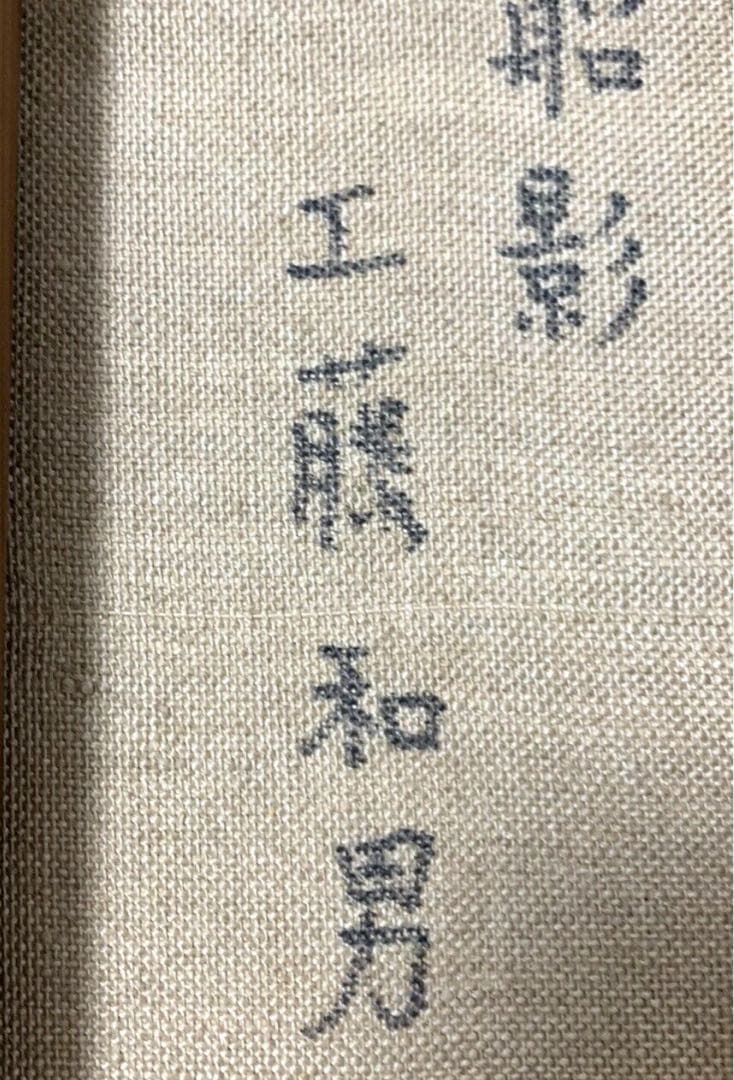 船影
工藤和男